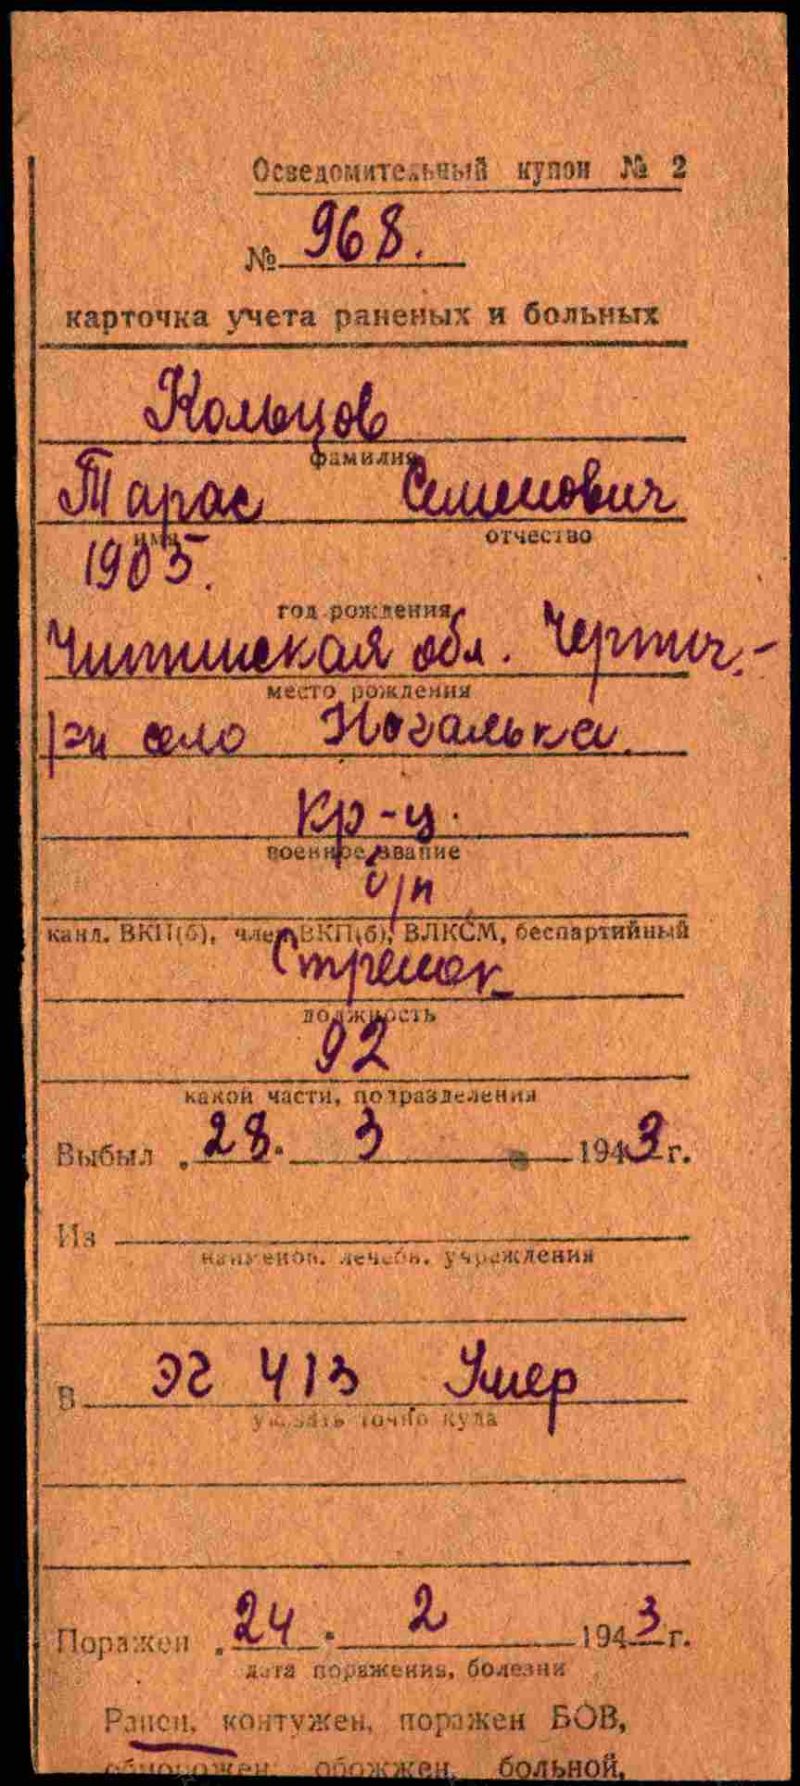 Осведомительный купон № 2
№ 968.
карточка учета раненых и больных
Кольцов
фамилия
Тарас Семенович
имя отчество
1905.
год рождения
Читинская обл. Чертич.-
место рождения
р-н село
Кр-ц.
военное звание
б/п
канд. ВКП(б), член ВКП(б), ВЛКСМ, беспартийный
Стрелок
должность
92
какой части, подразделения
Выбыл . 28. 3 1943 г.
Из
наименов. лечебн. учреждения
В ЭГ 413 Умер
указать точно куда
Поражен . 24 . 2 1943 г.
дата поражения, болезни
Ранен, контужен, поражен БОВ,
обморожен, обожжен, больной,